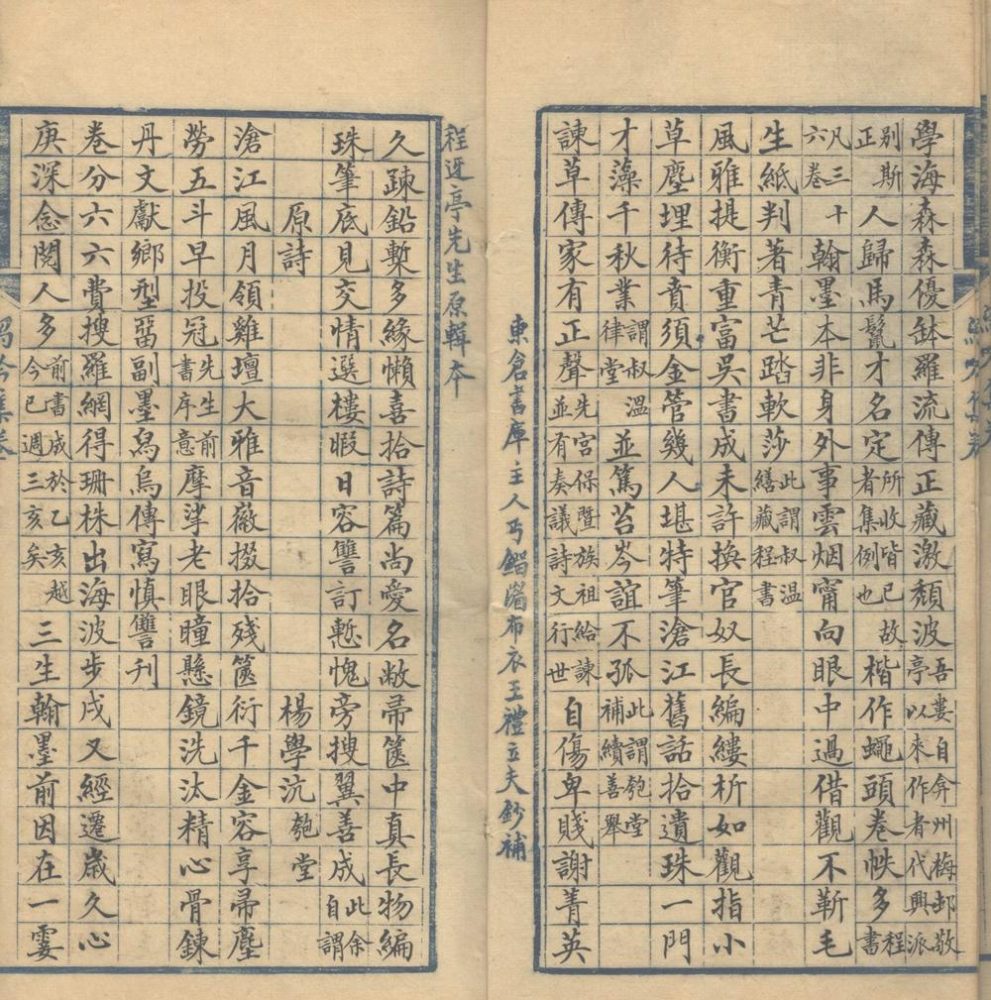 學海森森優鉢羅流傳正藏激頹波吾婁自弇州梅邨敬亭以來作者代興派
別斯正人歸馬鬣才名定所收皆已故者集例也楷作蠅頭卷帙多程書
凡三十六卷翰墨本非身外事雲烟甯向眼中過借觀不靳毛
生紙判著青芒踏軟莎此謂叔溫繕藏程書
風雅提衡重富吳書成未許換官奴長編縷析如觀指小
草塵埋待賁須金管幾人堪特筆滄江舊話拾遺珠一門
才藻千秋業謂叔溫律堂並篤苔岑誼不孤此謂匏堂補續善舉
諫草傳家有正聲先宮保暨族祖給諫並有奏議詩文行世自傷卑賤謝菁英
東倉書庫主人布衣王禮立夫鈔補
程迓亭先生原輯本
久踈鉛槧多緣懶喜拾詩篇尚愛名敝帚篋中真長物編
珠筆底見交情選樓暇日容讐訂慙愧旁搜翼善成此余自謂
原詩 楊學沆匏堂
滄江風月領雞壇大雅音徽掇拾殘篋衍千金容享帚塵
勞五斗早投冠先生前書序意摩挲老眼瞳懸鏡洗汰精心骨鍊
丹文獻鄉型畱副墨舄烏傳寫慎讐刊
卷分六六費搜羅網得珊株出海波步戍又經遷歲久心
庚深念閱人多前書成於乙亥越今已週三亥矣三生翰墨前因在一霎